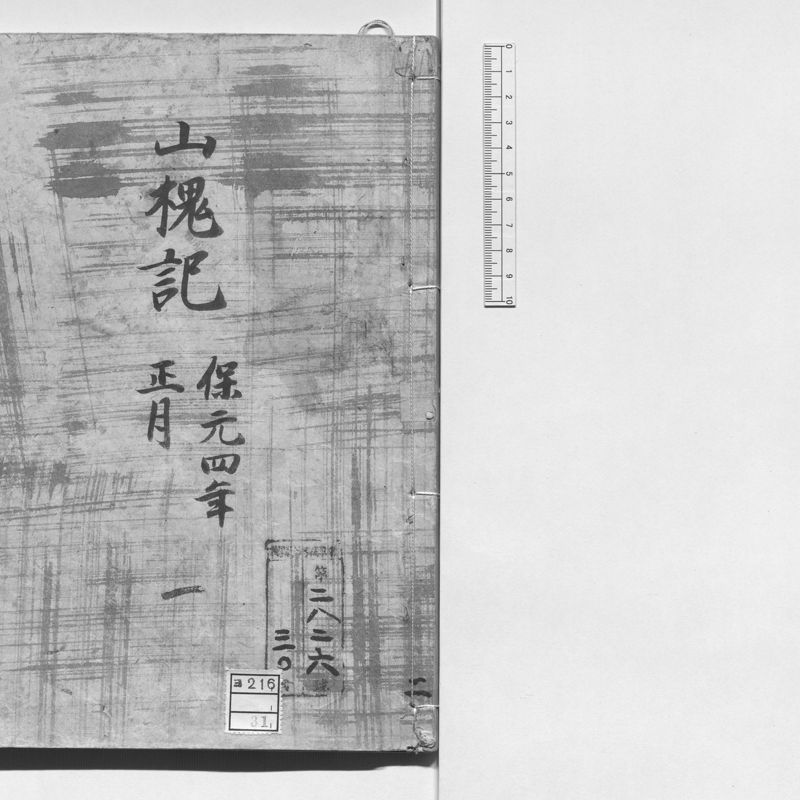 山槐記
保元四年
正月
一
第二八二六
三〇
二
ヨ216
31
0 1 2 3 4 5 6 7 8 9 10